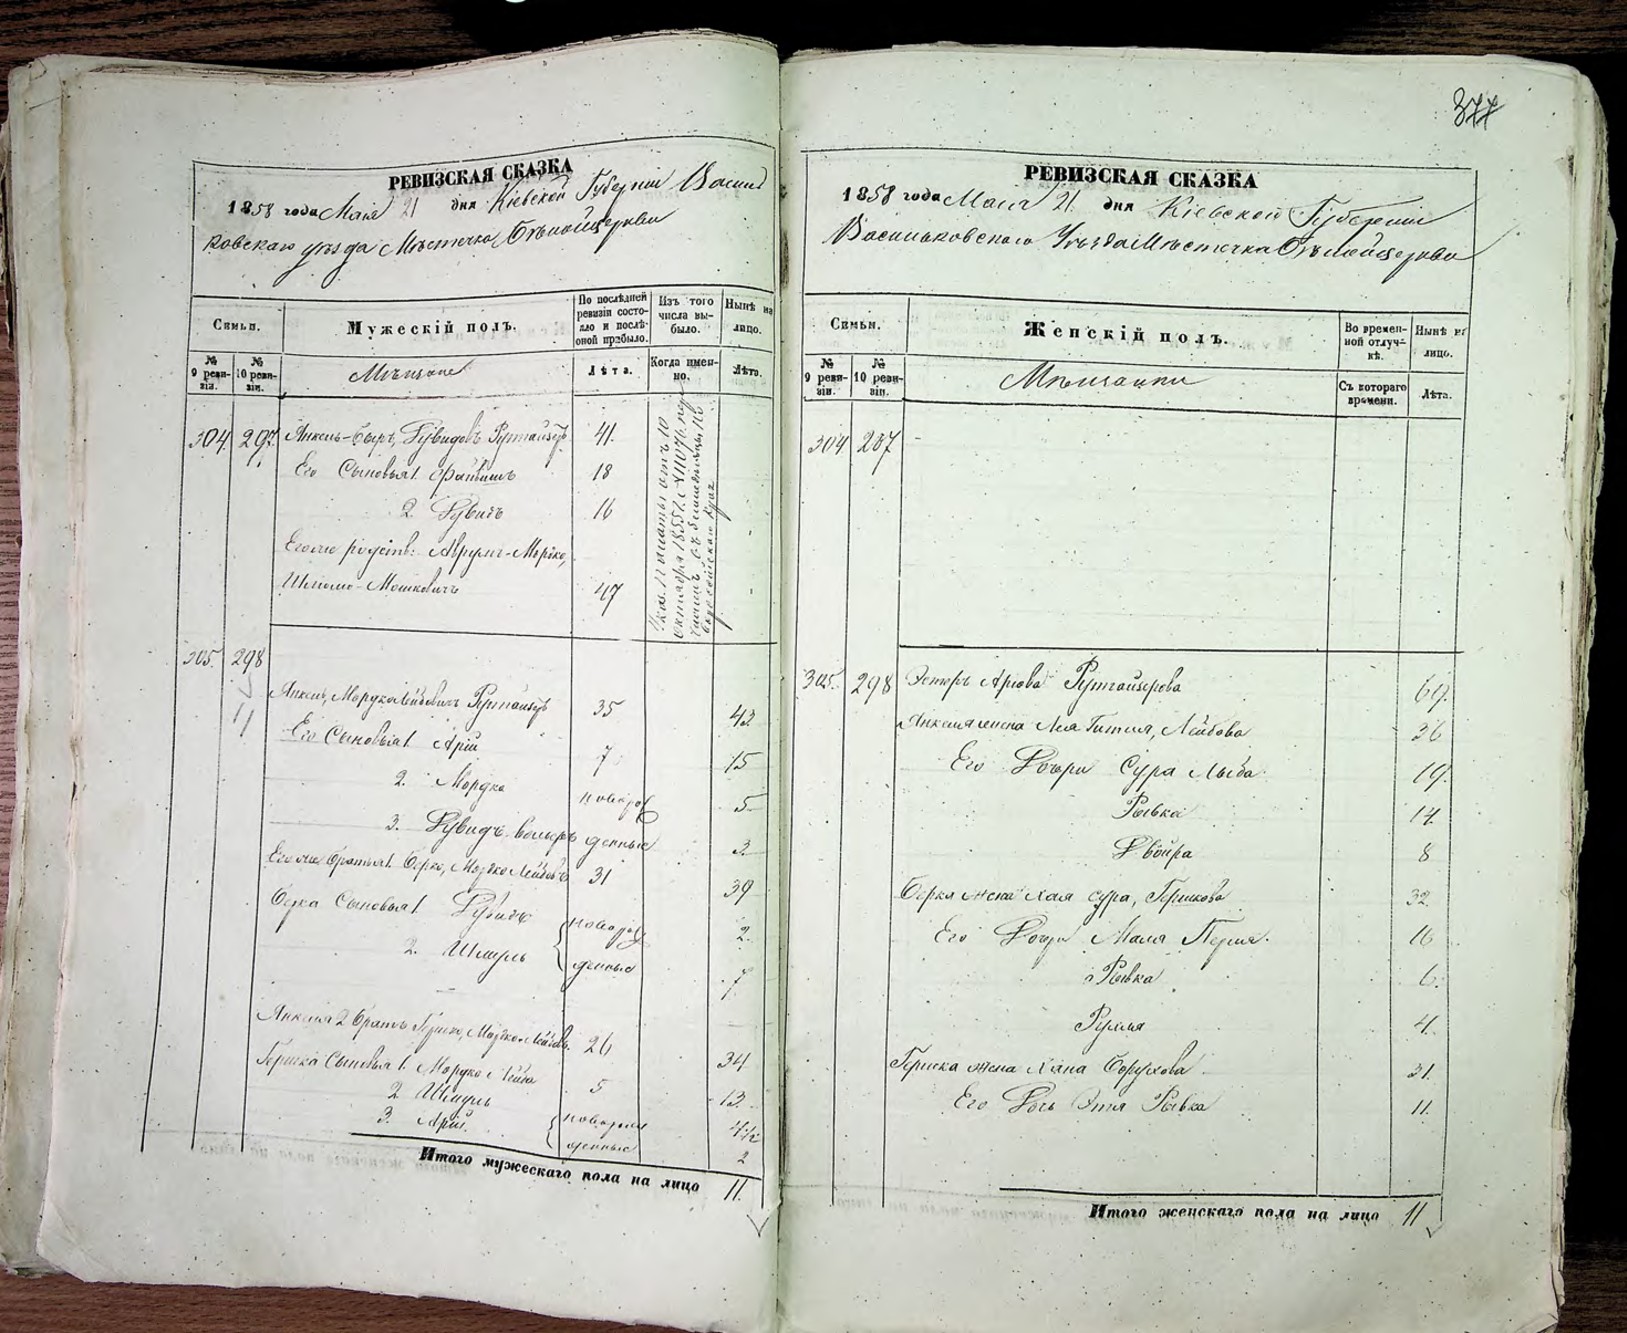 377
РЕВИЗСКАЯ СКАЗКА
1858 года Маія 21 дня Кіевской Губерніи Василь
ковскаго уѣзда Мѣстечка Бѣлойцеркви
Семьи.
Мужескій полъ.
По послѣдней ревизіи состояло и послѣ оной прибыло.
Изъ того числа выбыло.
Нынѣ на лицо.
№ 9 ревизіи.
№ 10 ревизіи.
Мѣщане
Лѣта.
Когда именно.
Лѣта.
304. 297. Янкель-Сыръ, Дувидовъ 41.
Его Сыновья 1. Файвишъ 18
2. Дувидъ 16
Его же родств: Аврумъ-Мордко,
Шлиомо-Мошковичъ 47
Октября 1855 г. № 11076
305. 298
Янкель, Мордколейбовичъ 35 43
Его Сыновья 1. Арій 7 15
2. Мордко новорож 5
3. Дувидъ-Вольфъ денные 3
Его же братья 1. Берко, Мордко Лейбовъ 31 39
Берка Сыновья 1. Дувидъ новорож 2.
2. Шмуль денные 7
Янкеля 2 братъ Гершко, Мордко-Лейбов. 26 34
Гершка Сыновья 1. Мордко Лейба 5 13
2. Шмуль новорож 4½
3. Арій денные 2
Итого мужескаго пола на лицо 11.
РЕВИЗСКАЯ СКАЗКА
1858 года Маія 21 дня Кіевской Губерніи
Васильковскаго Уѣзда Мѣстечка Бѣлойцеркви
Семьи.
Женскій полъ.
Во временной отлучкѣ.
Нынѣ на лицо.
№ 9 ревизіи.
№ 10 ревизіи.
Мѣщанки
Съ котораго времени.
Лѣта.
304 297
305. 298 Эстеръ Арьова 69.
Янкеля жена Лея Гитля, Лейбова 36
Его Дочери Сура Лыба 19.
Рывка 14
Двойра 8
Берка жена Хая Сура, Гершкова 32.
Его Дочери Маля Перля. 16
Рывка 6.
Рухля 4.
Гершка жена Хана Борухова 31.
Его Дочь Этля Рывка 11.
Итого женскаго пола на лицо 11